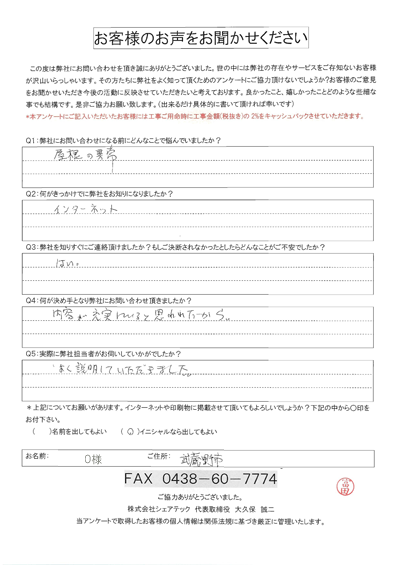 お客様のお声をお聞かせください
この度は弊社にお問い合わせを頂き誠にありがとうございました。世の中には弊社の存在やサービスをご存知ないお客様
が沢山いらっしゃいます。その方たちに弊社をよく知って頂くためのアンケートにご協力頂けないでしょうか?お客様のご意見
をお聞かせいただき今後の活動に反映させていただきたいと考えております。良かったこと、嬉しかったことどのような些細な
事でも結構です。是非ご協力お願い致します。(出来るだけ具体的に書いて頂ければ幸いです)
*本アンケートにご記入いただいたお客様には工事ご用命時に工事金額(税抜き)の2%をキャッシュバックさせていただきます。
Q1:弊社にお問い合わせになる前にどんなことで悩んでいましたか?
屋根の異常
Q2:何がきっかけでに弊社をお知りになりましたか?
インターネット
Q3:弊社を知りすぐにご連絡頂けましたか?もしご決断されなかったとしたらどんなことがご不安でしたか?
はい。
Q4:何が決め手となり弊社にお問い合わせ頂きましたか?
内容が充実していると思われたから。
Q5:実際に弊社担当者がお伺いしていかがでしたか?
よく説明していただきました。
*上記についてお願いがあります。インターネットや印刷物に掲載させて頂いてもよろしいでしょうか?下記の中から〇印を
お付下さい。
( )名前を出してもよい (〇)イニシャルなら出してもよい
お名前: O様 ご住所: 武蔵野市
FAX 0438-60-7774
ご協力ありがとうございました。
株式会社シェアテック 代表取締役 大久保 誠二
当アンケートで取得したお客様の個人情報は関係法規に基づき厳正に管理いたします。